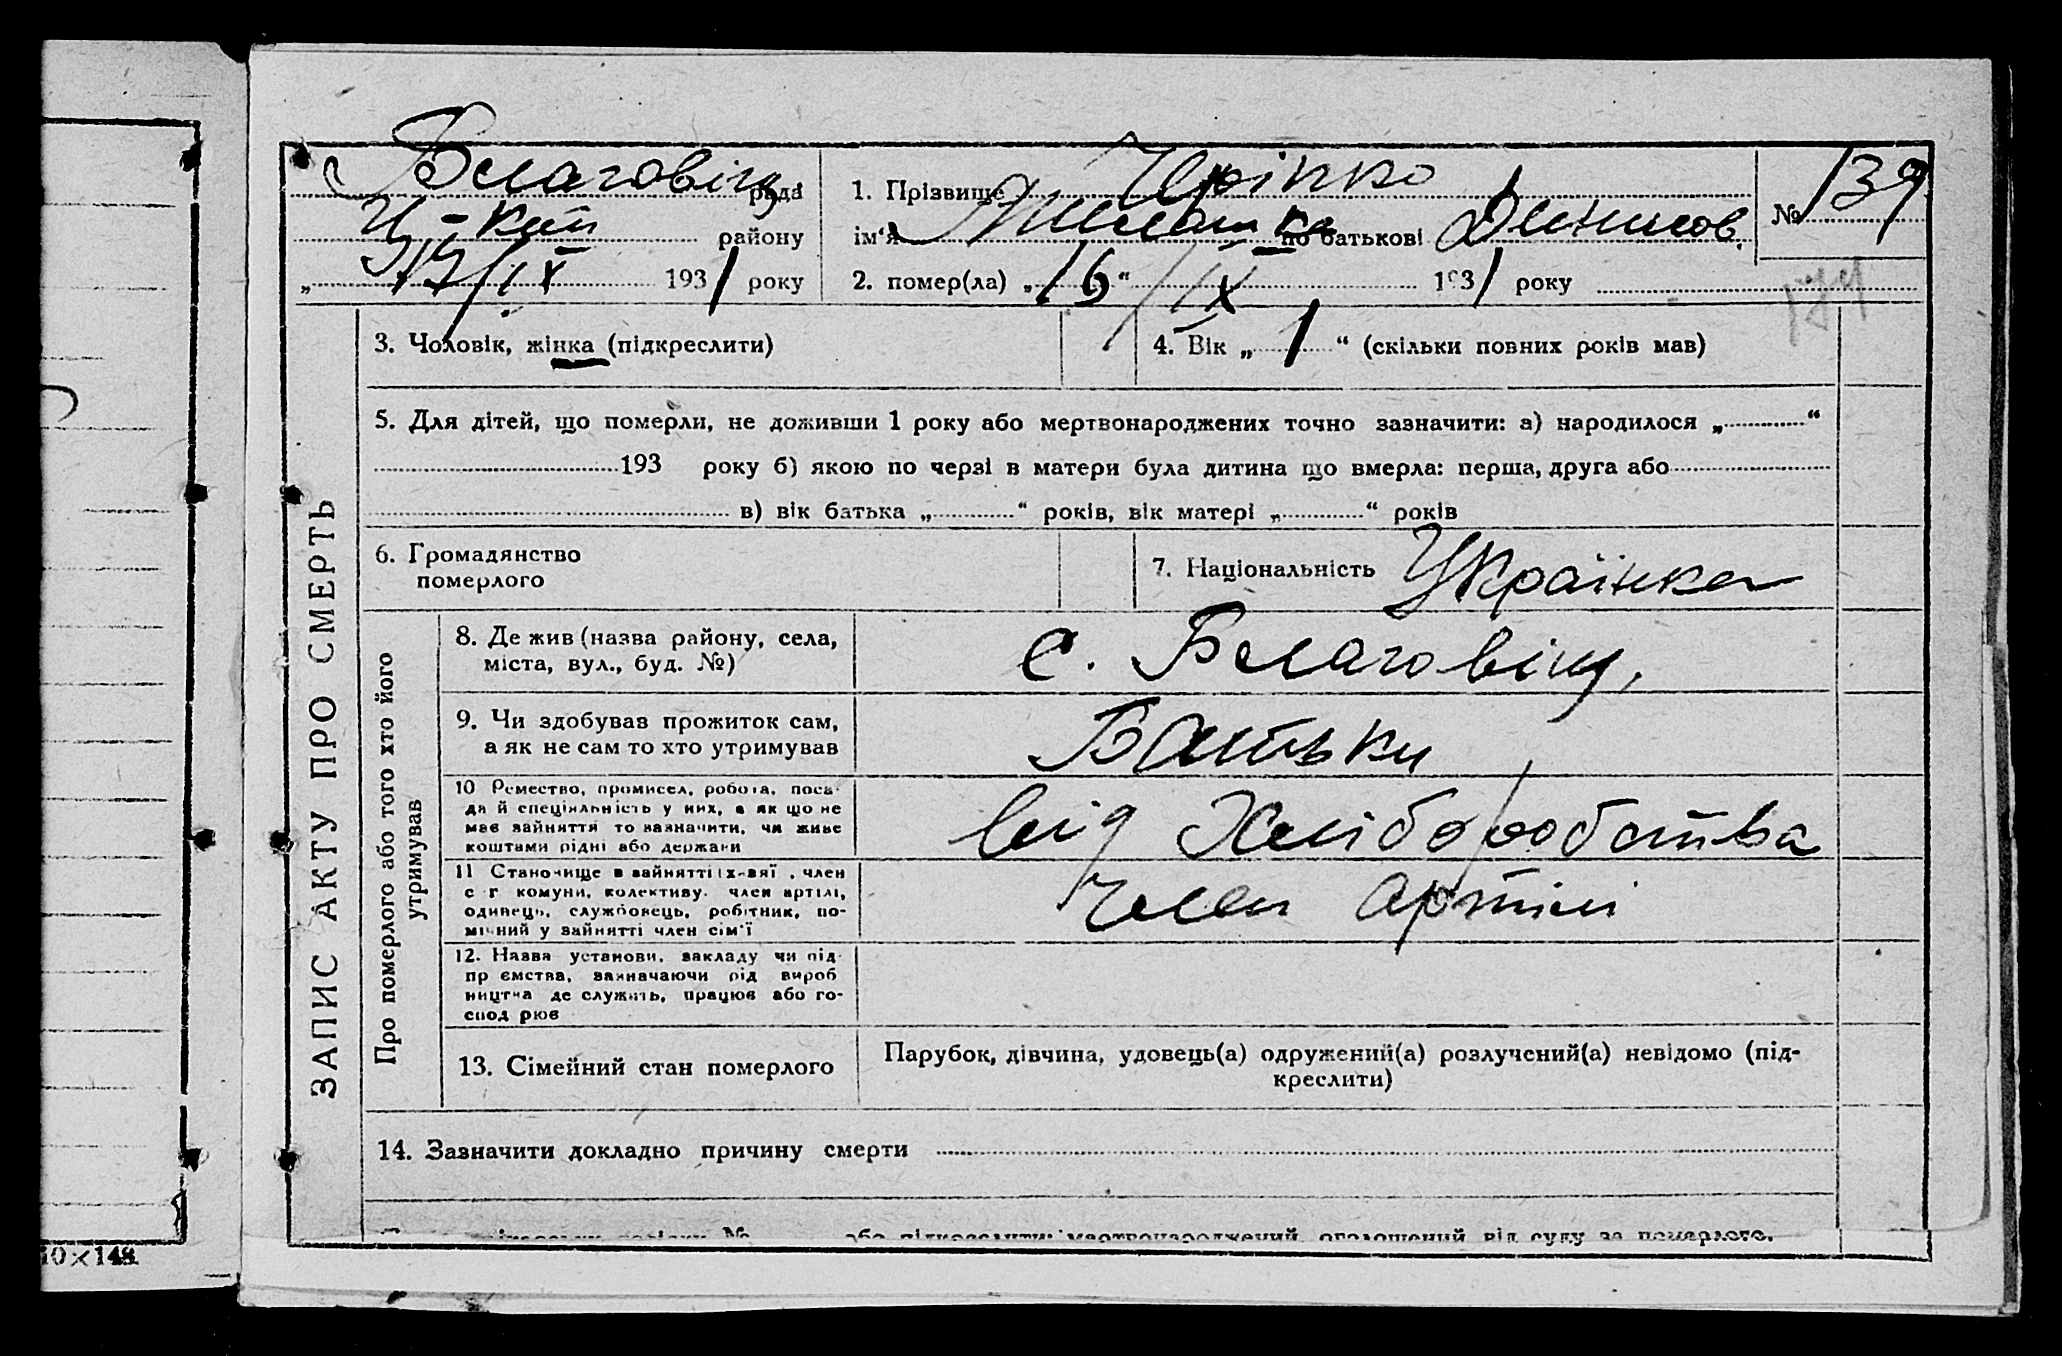 Благовіщ. рада
1. Прізвище
№ 139
району
ім'я по батькові Денисов.
„ 17/IX 1931 року
2. помер(ла) „16“ /IX 1931 року
3. Чоловік, жінка (підкреслити)
4. Вік „ 1 “ (скільки повних років мав)
5. Для дітей, що померли, не доживши 1 року або мертвонароджених точно зазначити: а) народилося „ “
193 року б) якою по черзі в матери була дитина що вмерла: перша, друга або
в) вік батька „ “ років, вік матері „ “ років
6. Громадянство
померлого
7. Національність Українка
ЗАПИС АКТУ ПРО СМЕРТЬ
Про померлого або того хто його
утримував
8. Де жив (назва району, села,
міста, вул., буд. №)
с. Благовіщ.
9. Чи здобував прожиток сам,
а як не сам то хто утримував
Батьки
10 Ремество, промисел, робота, поса-
да й спеціяльність у них, а як що не
має зайняття то зазначити, чи живе
коштами рідні або держави
від Хліборобства
11 Становище в зайнятті член
с г комуни, колективу, член артілі,
одинець, службовець, робітник, по-
мічний у зайнятті член сім'ї
член артілі
12. Назва установи, закладу чи під-
пр ємства, зазначаючи рід вироб
ництва де служить, працює або го-
спод рює
13. Сімейний стан померлого
Парубок, дівчина, удовець(а) одружений(а) розлучений(а) невідомо (під-
креслити)
14. Зазначити докладно причину смерти
№ або підкреслити: мертвонароджений, оголошений від суду за померлого.
10×148